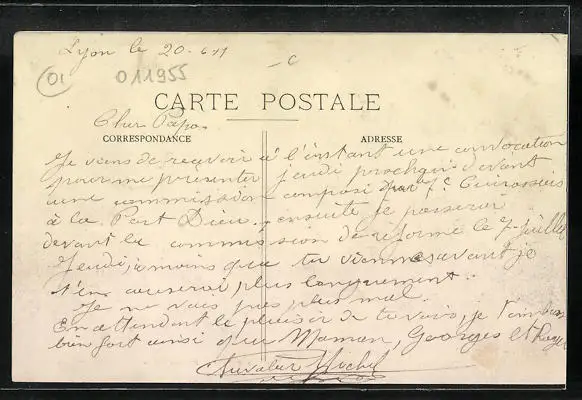 Lyon le 20-6-11
01
011955
CARTE POSTALE
Cher Papa
CORRESPONDANCE
ADRESSE
Je viens de recevoir à l'instant une convocation
pour me présenter jeudi prochain devant
une commission composé par
à la Part Dieu, ensuite je passerai
devant la commission de réforme le 7 juillet
Jeudi, à moins que tu viennes avant je
t'en causerai plus longuement.
Je ne vais pas plus mal.
En attendant le plaisir de te voir, je t'embrasse
bien fort ainsi que Maman, Georges et Roger
Michel